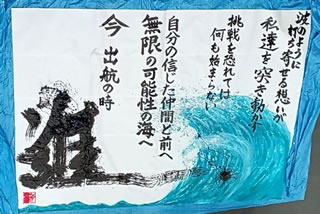 波のように
打ち寄せる想いが
私達を突き動かす
挑戦を恐れては
何も始まらない
自分の信じた仲間と前へ
無限の可能性の海へ
今 出航の時